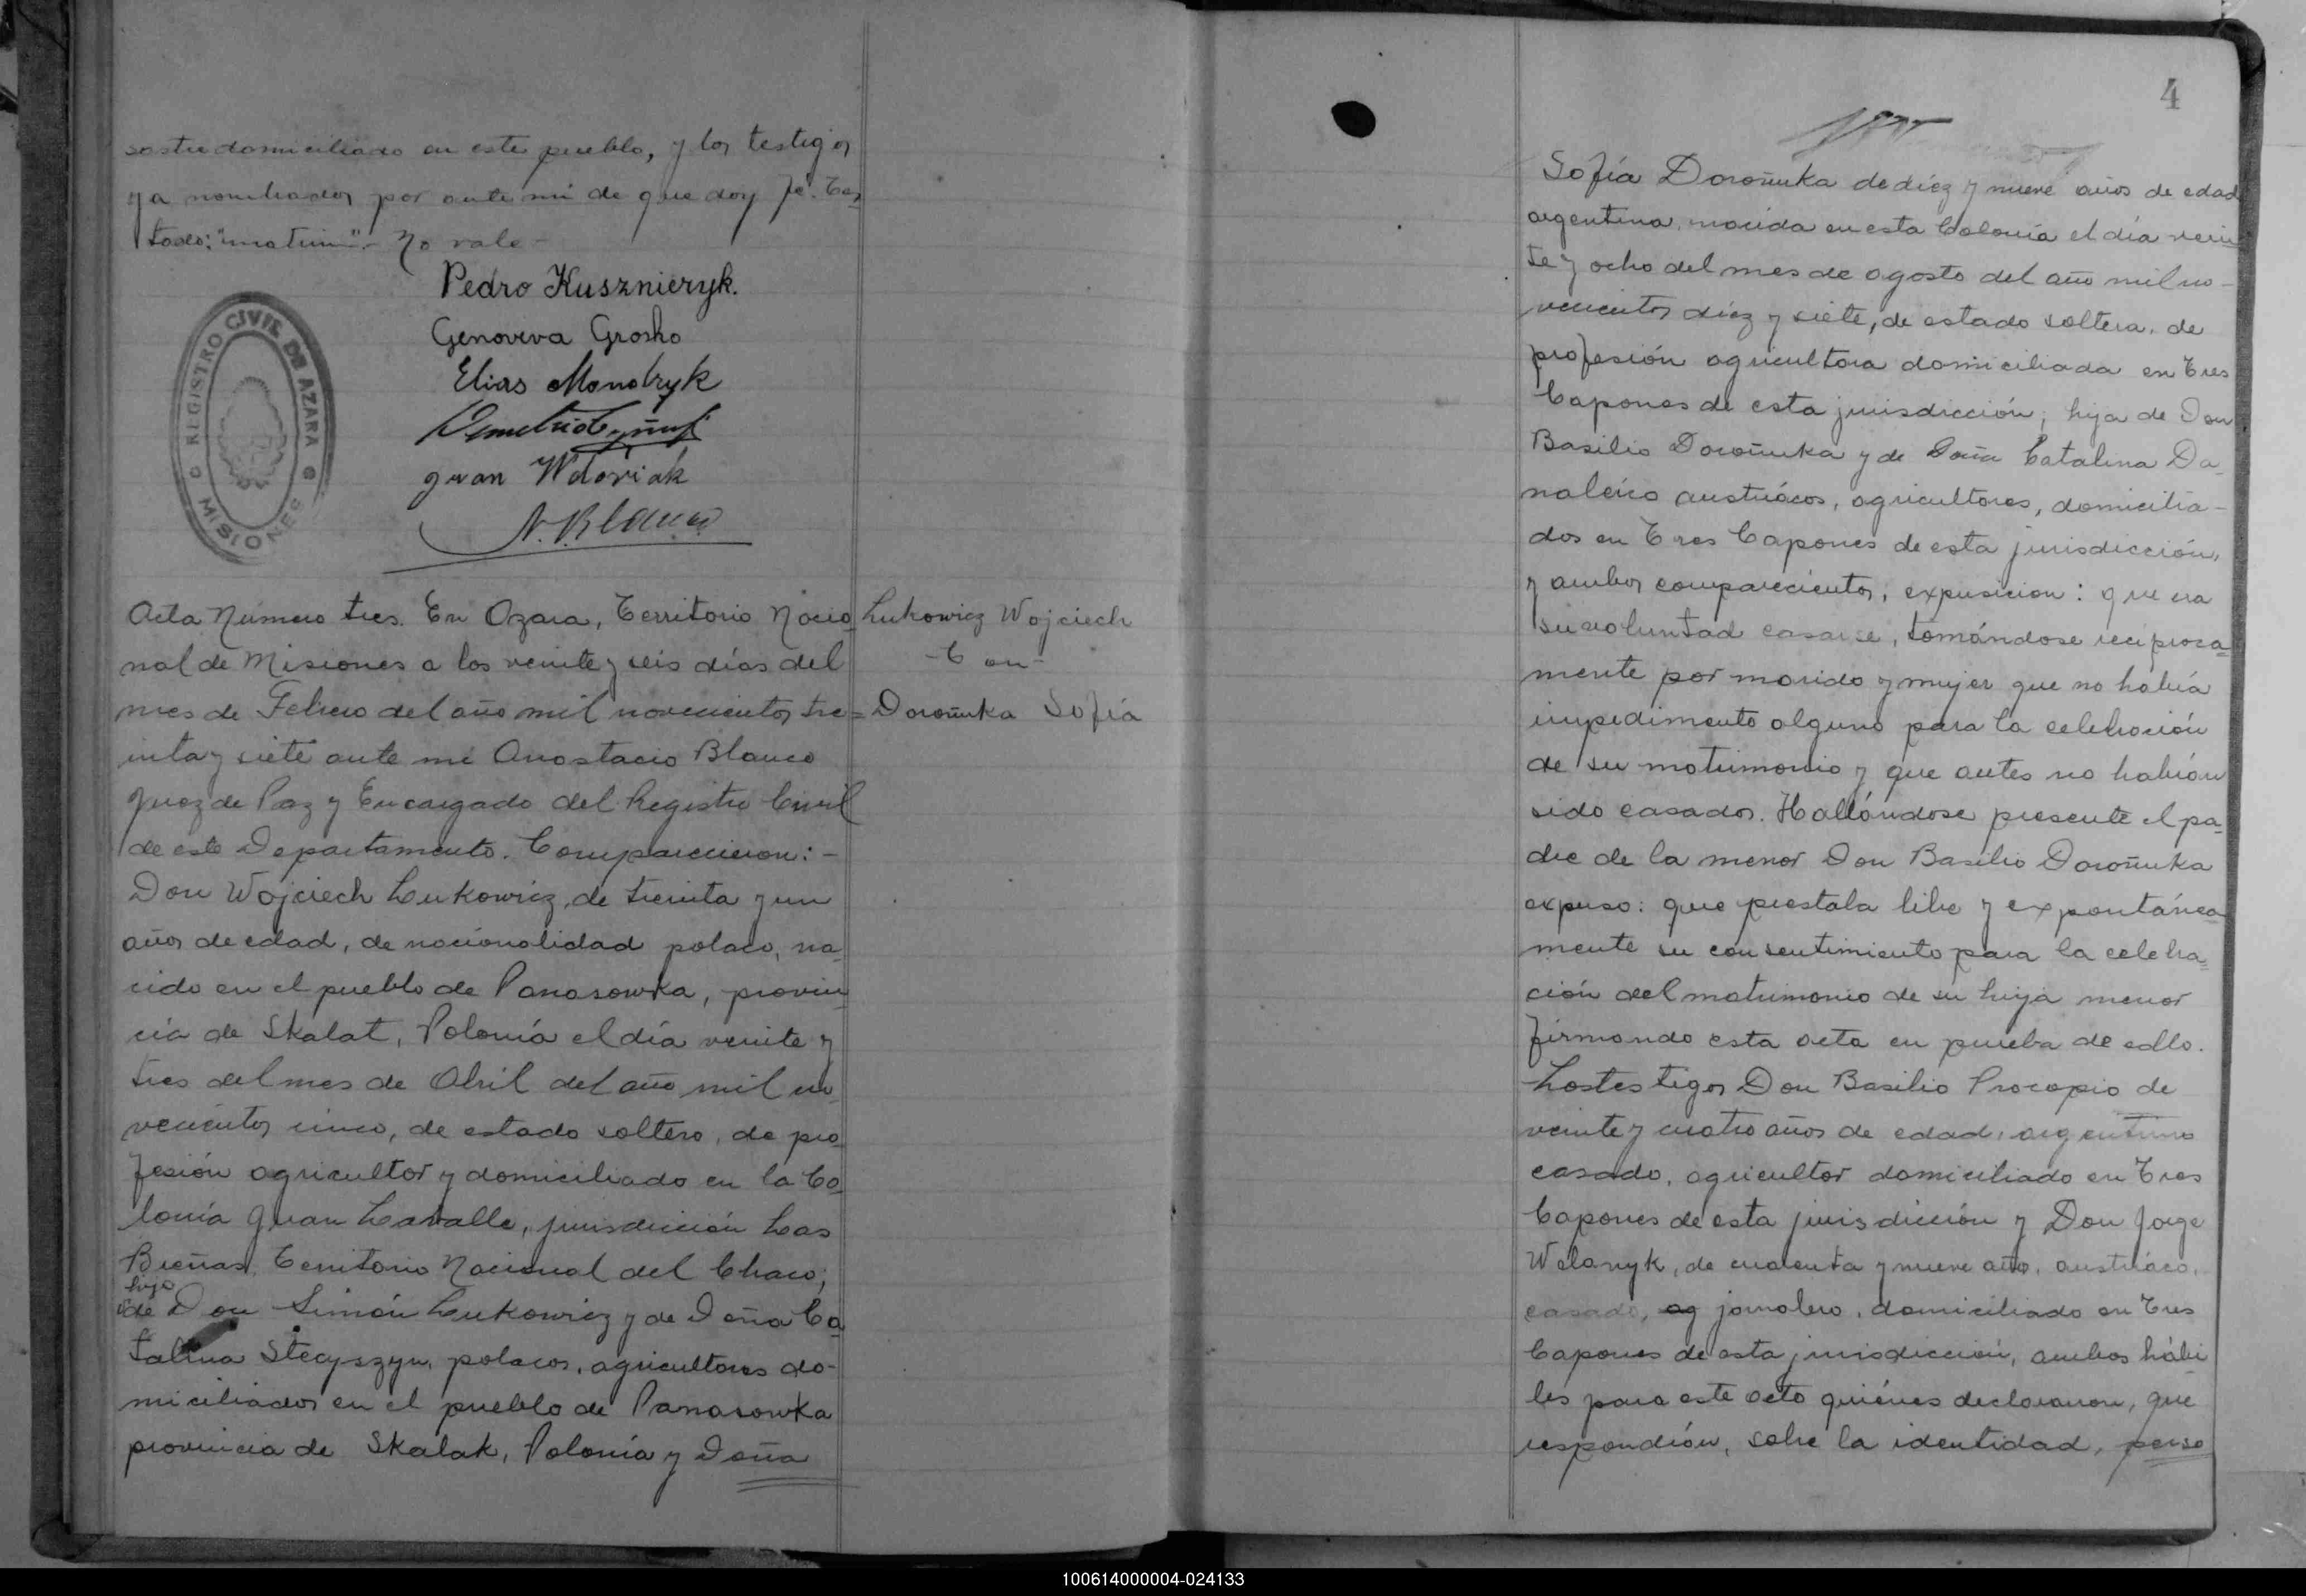 sastre domiciliado en este pueblo, y los testigos
ya nombrados por ante mi de que doy fe. Tes
tado: "matrim" - No vale -
Pedro Kusznieryk.
Genoveva Grosko
Elias Mondryk
Juan Wdoviak
A. Blanco
REGISTRO CIVIL DE AZARA
MISIONES
Acta Número tres. En Azara, Territorio Nacio
nal de Misiones a los veinte y seis días del
mes de Febrero del año mil novecientos tre=
inta y siete ante mi Anastacio Blanco
Juez de Paz y Encargado del Registro Civil
de este Departamento. Comparecieron: -
Don Wojciech Lukowicz, de treinta y un
años de edad, de nacionalidad polaco, na
cido en el pueblo de Panasowka, provin
cia de Skalat, Polonia el día veinte y
tres del mes de Abril del año mil no
vecientos cinco, de estado soltero, de pro
fesión agricultor y domiciliado en la Co
lonia Juan Lavalle, jurisdicción Las
Breñas, Territorio Nacional del Chaco;
hijo
de Don Simón Lukowicz y de Doña Ca
talina Stecyszyn, polacos, agricultores do-
miciliados en el pueblo de Panasowka
provincia de Skalak, Polonia y Doña
Lukowicz Wojciech
- Con -
Doroñuka Sofía
4
Sofía Doroñuka de diez y nueve años de edad
argentina, nacida en esta Colonia el día vein
te y ocho del mes de agosto del año mil no-
vecientos diez y siete, de estado soltera, de
profesión agricultora domiciliada en Tres
Capones de esta jurisdicción; hija de Don
Basilio Doroñuka y de Doña Catalina Da
nalcico austriácos, agricultores, domicilia-
dos en Tres Capones de esta jurisdicción,
y ambos comparecientos, expusicion: que era
su voluntad casarse, tomándose reciproca=
mente por marido y mujer que no había
impedimento alguno para la celebración
de su matrimonio y que antes no habían
sido casados. Hallándose presente el pa=
dre de la menor Don Basilio Doroñuka
expuso: que prestaba libre y expontánea
mente su consentimiento para la celebra=
ción del matrimonio de su hija menor
firmando esta acta en prueba de ello.
Los testigos Don Basilio Procopio de
veinte y cuatro años de edad, argentino
casado, agricultor domiciliado en Tres
Capones de esta jurisdicción y Don Jorge
Welanyk, de cuarenta y nueve año, austriáco,
casado, ag jornalero, domiciliado en Tres
Capones de esta jurisdicción, ambos hábi
les para este acto quiénes declararon, que
respondían, sobre la identidad, perso
100614000004-024133